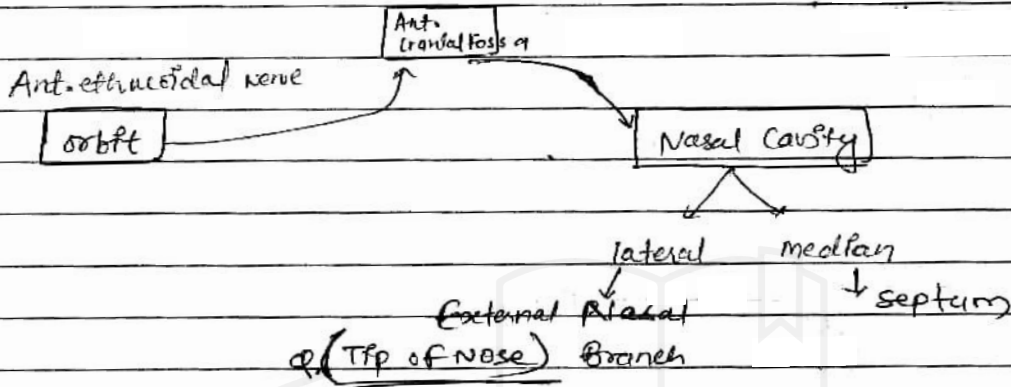 Ant.
Cranial Fossa
Ant. ethmoidal nerve
orbit
Nasal Cavity
lateral median
septum
External Nasal
Q. (Tip of Nose) Branch